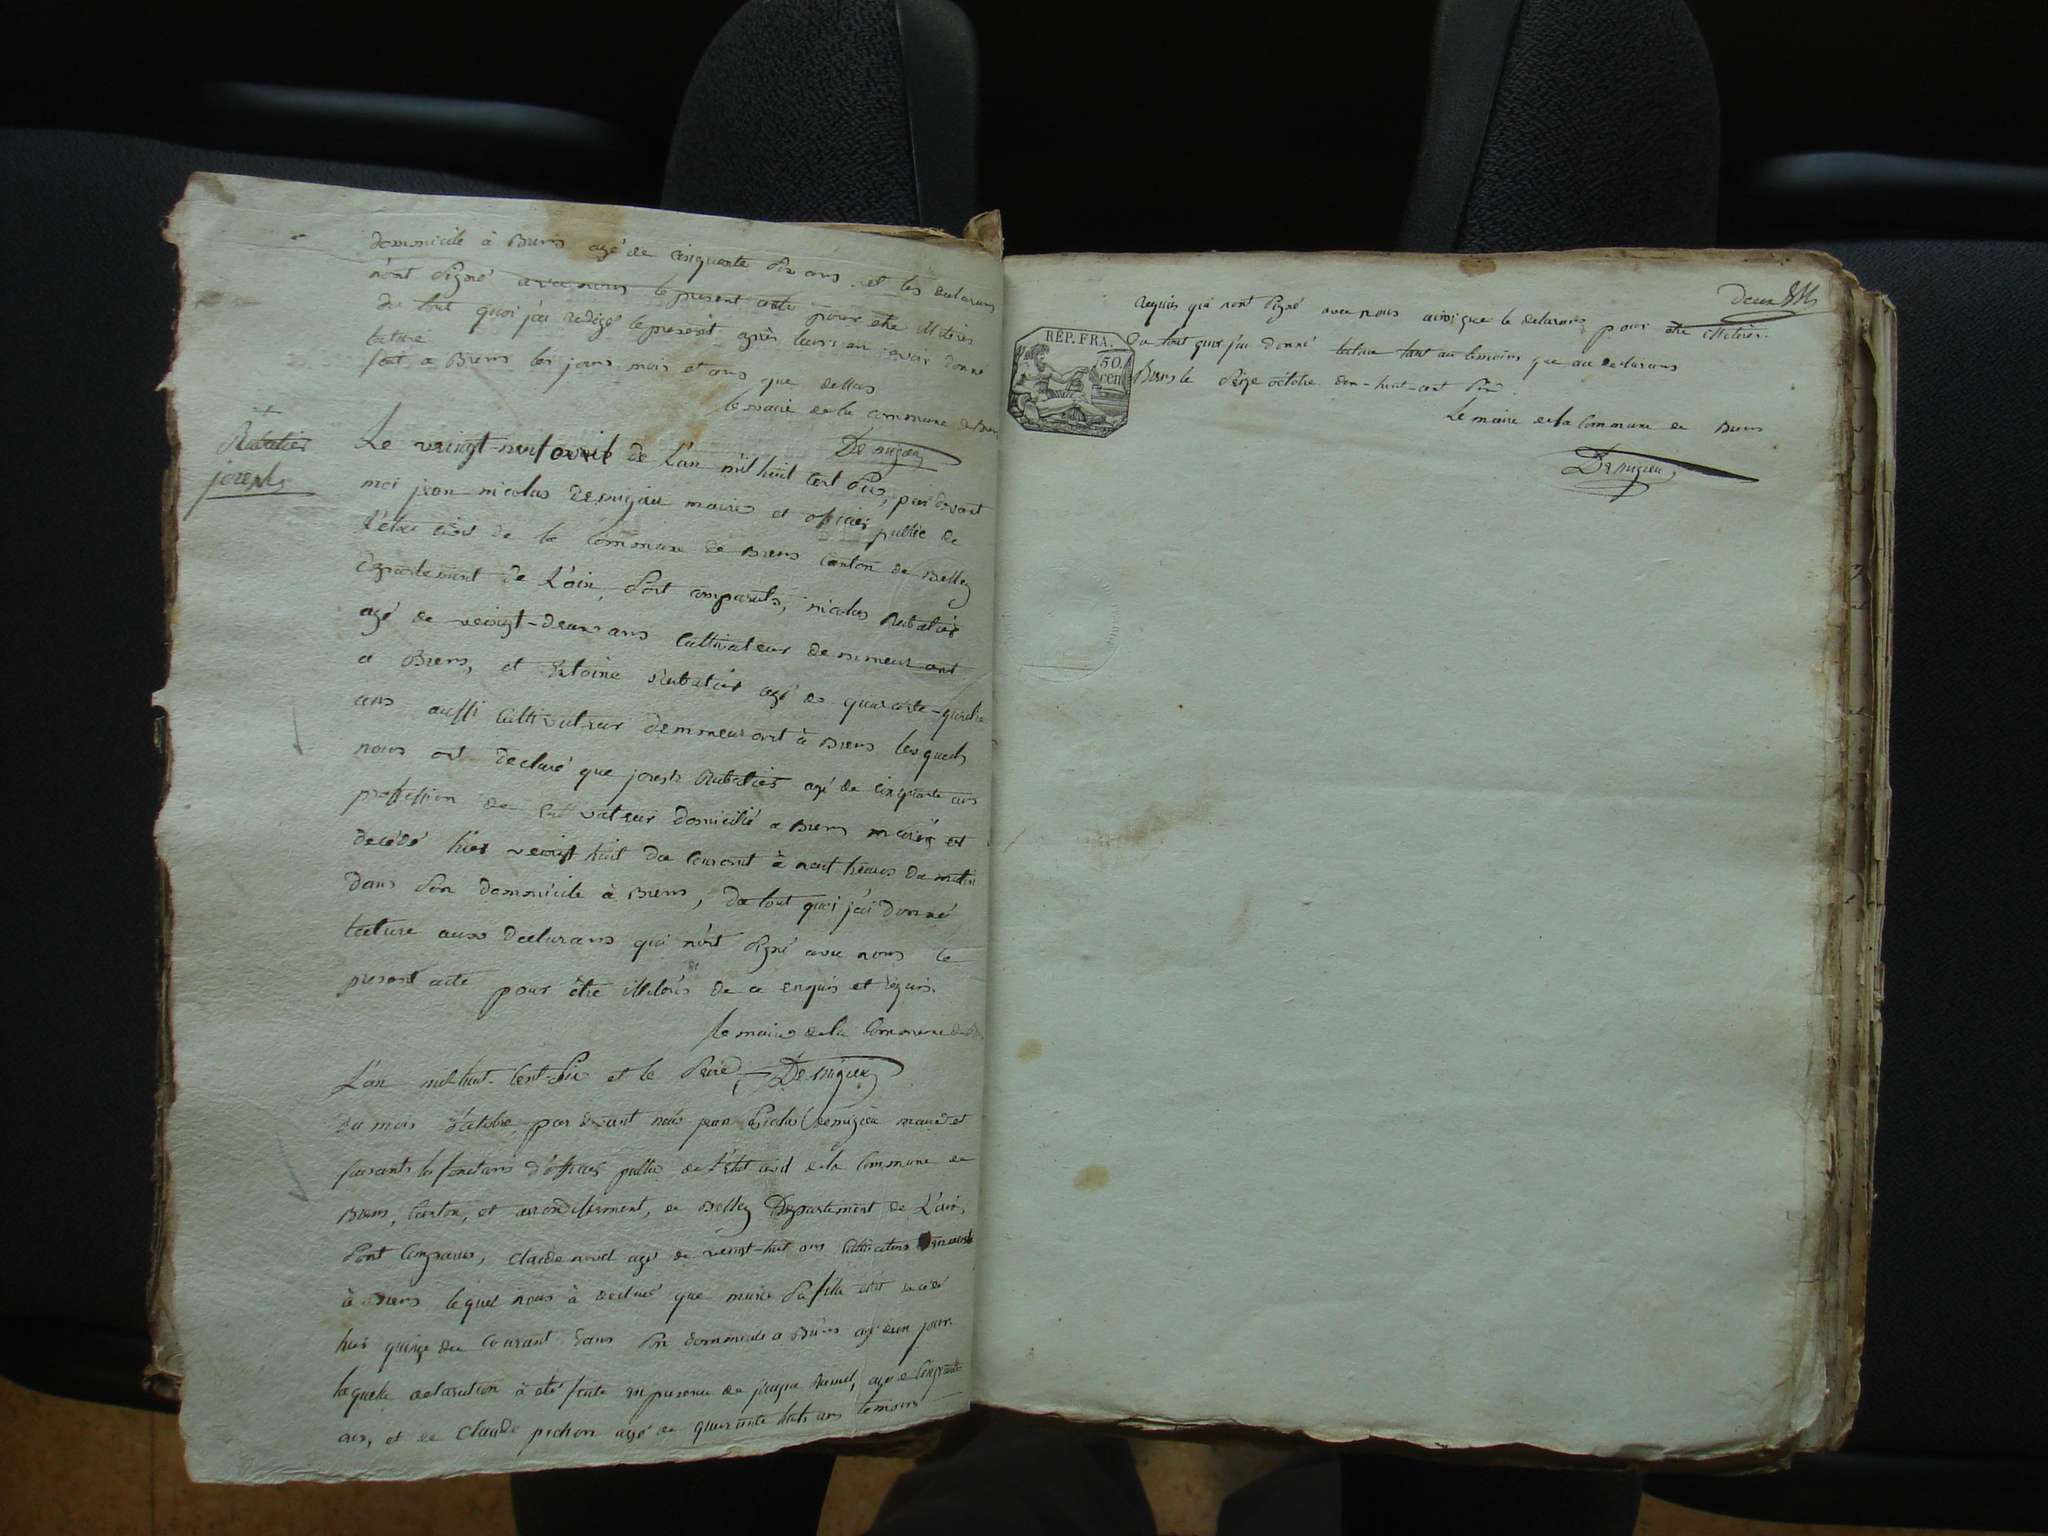 domicile à Brens agé de cinquante six ans et les declarans
n'ont signé avec nous le present acte pour etre illiteres
de tout quoi j'ai redigé le present après leurs en avoir donné
lecture
fait a Brens les jour mois et ans que dessus
le maire de la commune de Brens
Demigieu
Rubatier
joseph
Le veingt-neuf avril de L'an mil huit cent six, par devant
moi jean nicolas Demigieu maire et officier public de
l'état civil de la Commune de Brens Canton de Belley
departement de L'ain, sont comparuts, nicolas Rubatier
agé de veingt-deux ans Cultivateur demmeurant
a Brens, et Antoine Rubatier agé de quarante-quatre
ans aussi Cultivateur demmeurant à Brens lesquels
nous ont declaré que joseph Rubatier agé de cinquante ans
proffession de Cultivateur domicilié a Brens mariés est
decédé hier veingt huit du Courant à neuf heures du matin
dans son dommicile à Brens, de tout quoi j'ai donné
lecture aux declarans qui n'ont signé avec nous le
present acte pour être illiterés de ce enquis et requis.
le maire de la Commune de
Demigieu
L'an mil-huit-Cent-six et le seize
du mois d'octobre, par devant nous jean Nicolas Demigieu maire et
faisants les fonctions d'officier public de l'état civil de la Commune de
Brens, Canton, et arrondissement, de Belley Departement de L'ain,
sont Comparus, Claude agé de veingt-huit ans Cultivateur
à Brens lequel nous à declaré que marie sa fille etoit décédé
hier quinze du Courant dans son dommicile a Brens agé d'un jour
laquelle declaration à été faite en presence de jacque agé de Cinquante
ans, et de Claude pichon agé de quarante huit ans temoins
deux
requis qui n'ont signé avec nous ainsi que le declarans pour etre illiterés.
RÉP. FRA.
50
cen
De tout quoi j'ai donné lecture tant au temoins que au declarans
Brens le seize octobre huit-cent six
Le maire de la Commune de Brens
Demigieu